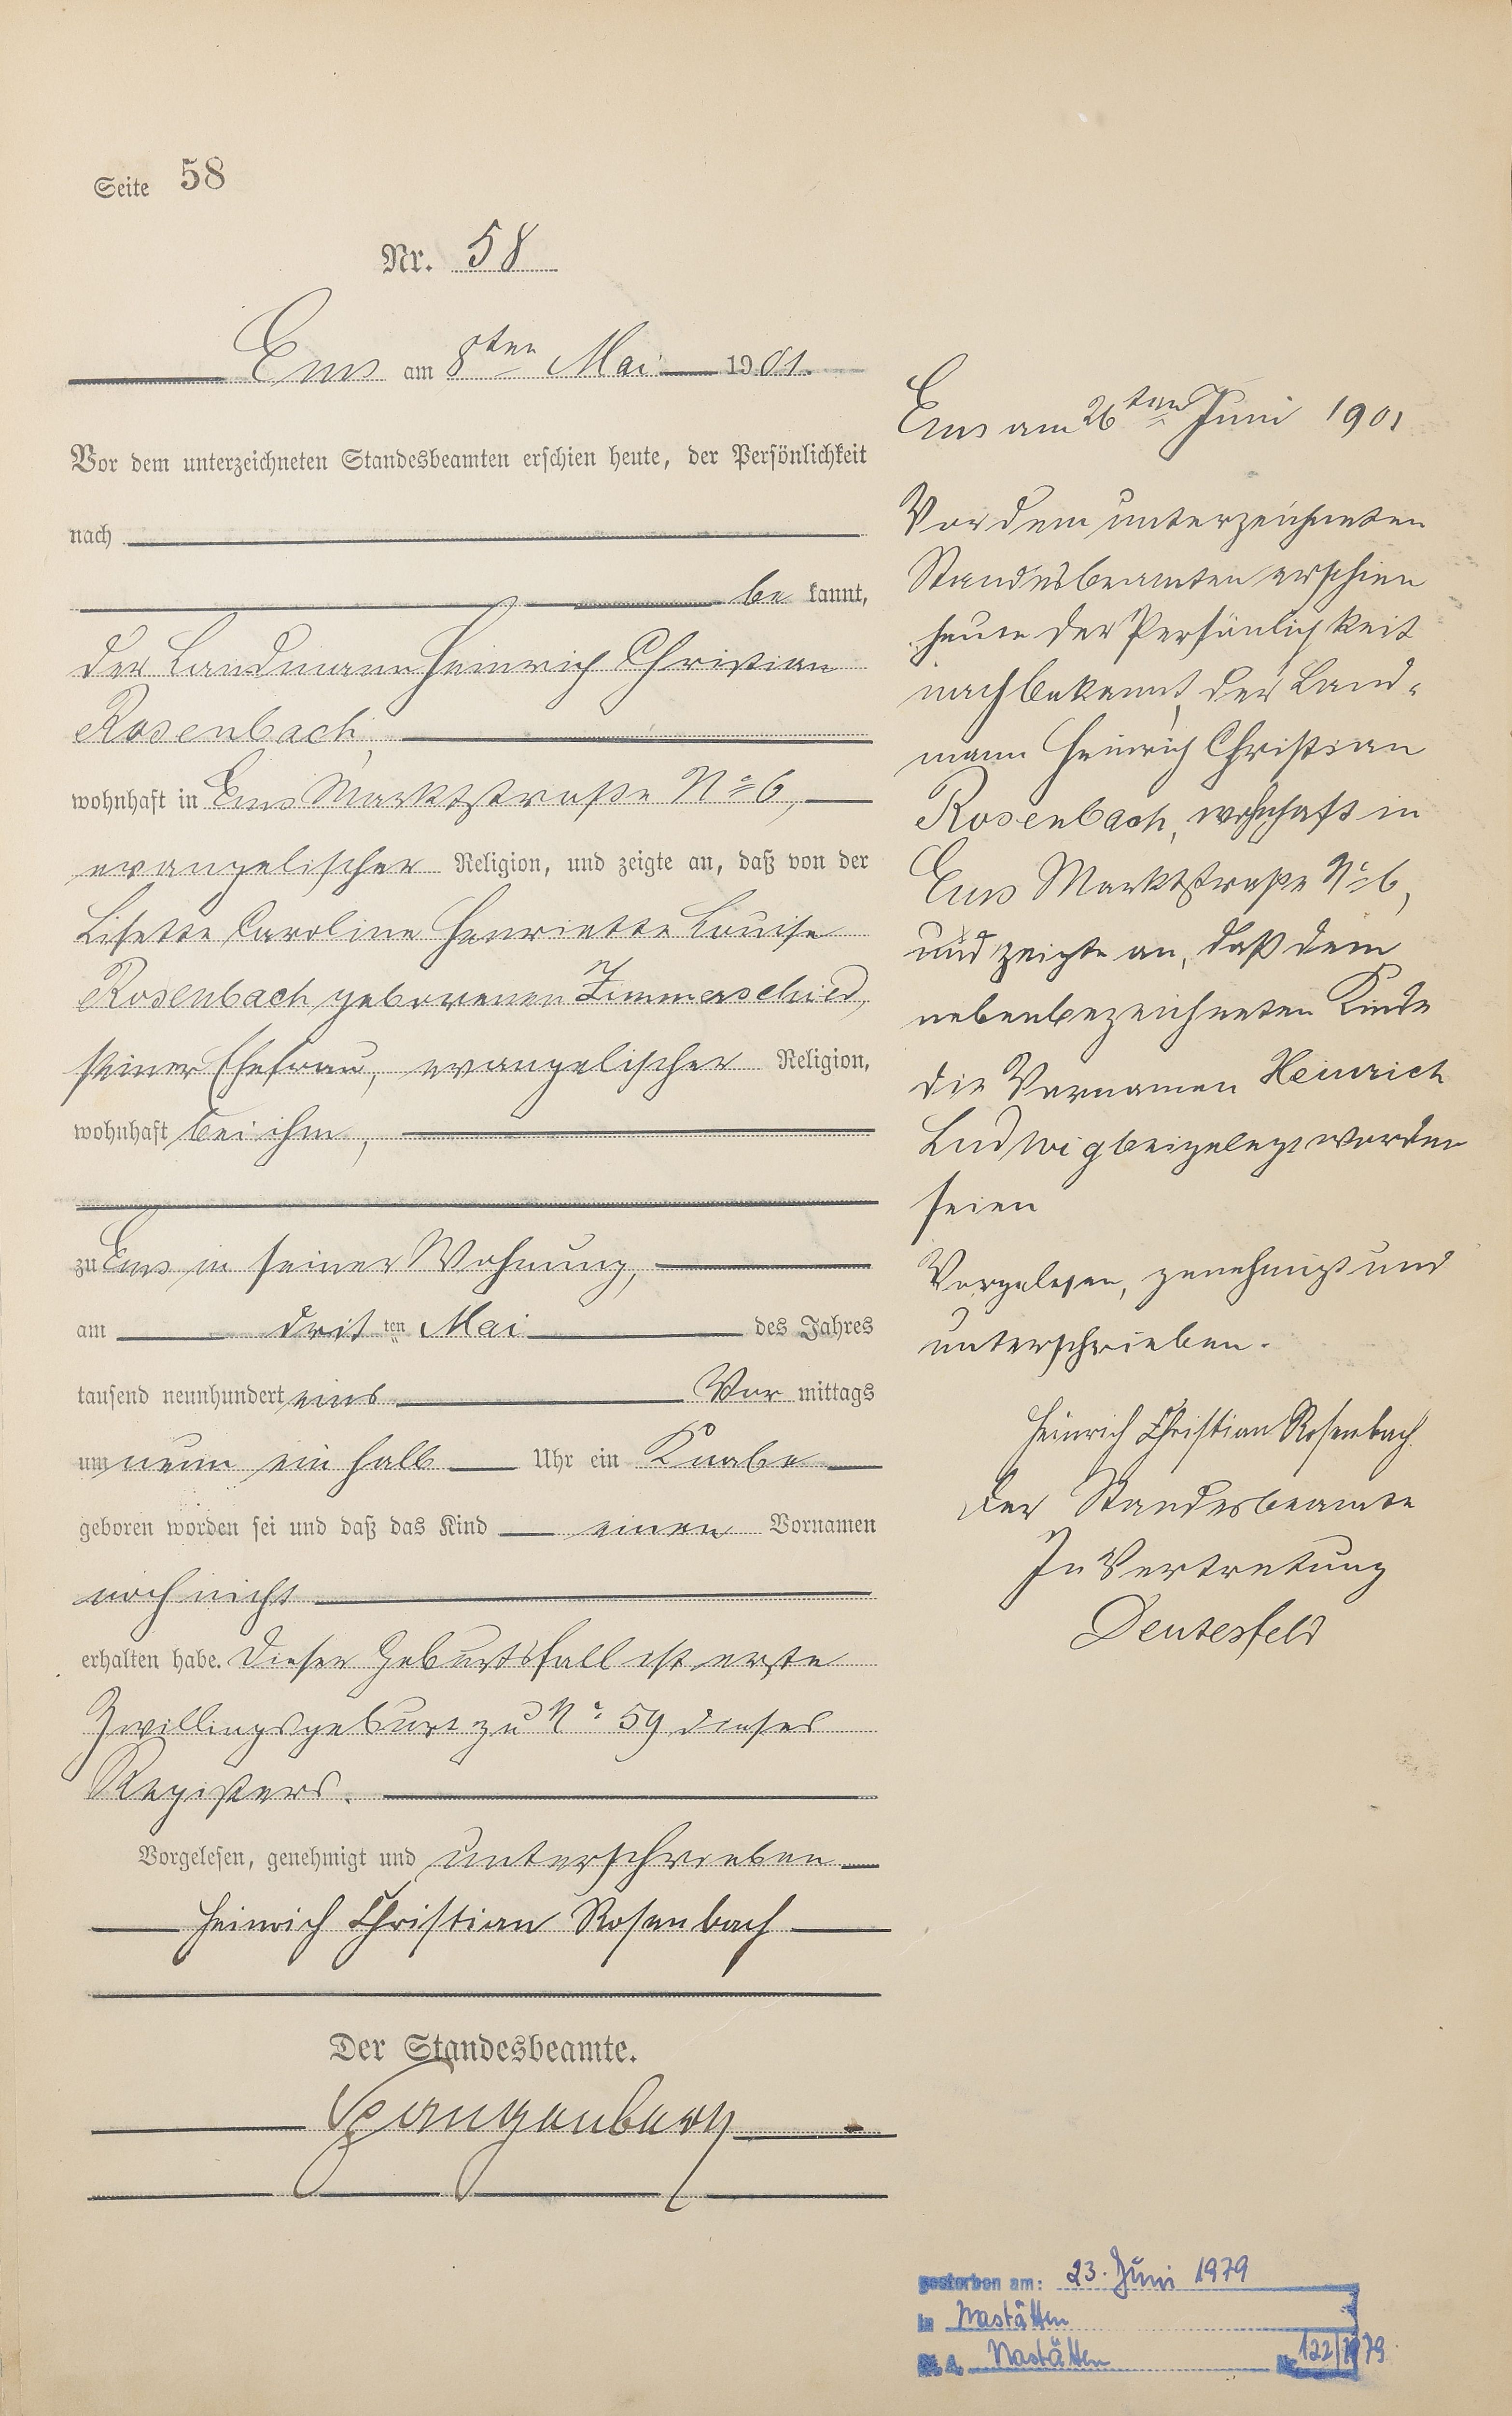 Seite 58
Nr. 58
Ems am 8ten Mai 1901.
Vor dem unterzeichneten Standesbeamten erschien heute, der Persönlichkeit
nach
be kannt,
der Landmann Heinrich Christian
Rosenbach,
wohnhaft in Ems Marktstraße No 6,
evangelischer Religion, und zeigte an, daß von der
Lisette Caroline Henriette Louise
Rosenbach geborenen Zimmerschied,
seiner Ehefrau, evangelischer Religion,
wohnhaft bei ihm,
zu Ems in seiner Wohnung,
am dritten Mai des Jahres
tausend neunhundert eins Vor mittags
um neun ein halb Uhr ein Knabe
geboren worden sei und daß das Kind einen Vornamen
noch nicht
erhalten habe. Dieser Geburtsfall ist erste
Zwillingsgeburt zu No 59 dieses
Registers.
Vorgelesen, genehmigt und unterschrieben
Heinrich Christian Rosenbach
Der Standesbeamte.
Ems am 26ten Juni 1901
Vor dem unterzeichneten
Standesbeamten erschien
heute der Persönlichkeit
nach bekannt, der Land-
mann Heinrich Christian
Rosenbach, wohnhaft in
Ems Marktstraße No 6,
und zeigte an, daß dem
nebenbezeichneten Kinde
die Vornamen Heinrich
Ludwig beigelegt worden
seien
Vorgelesen, genehmigt und
unterschrieben.
Heinrich Christian Rosenbach
Der Standesbeamte
In Vertretung
gestorben am: 23. Juni 1979
in Nastätten
St. A. Nastätten Nr. 122/1979